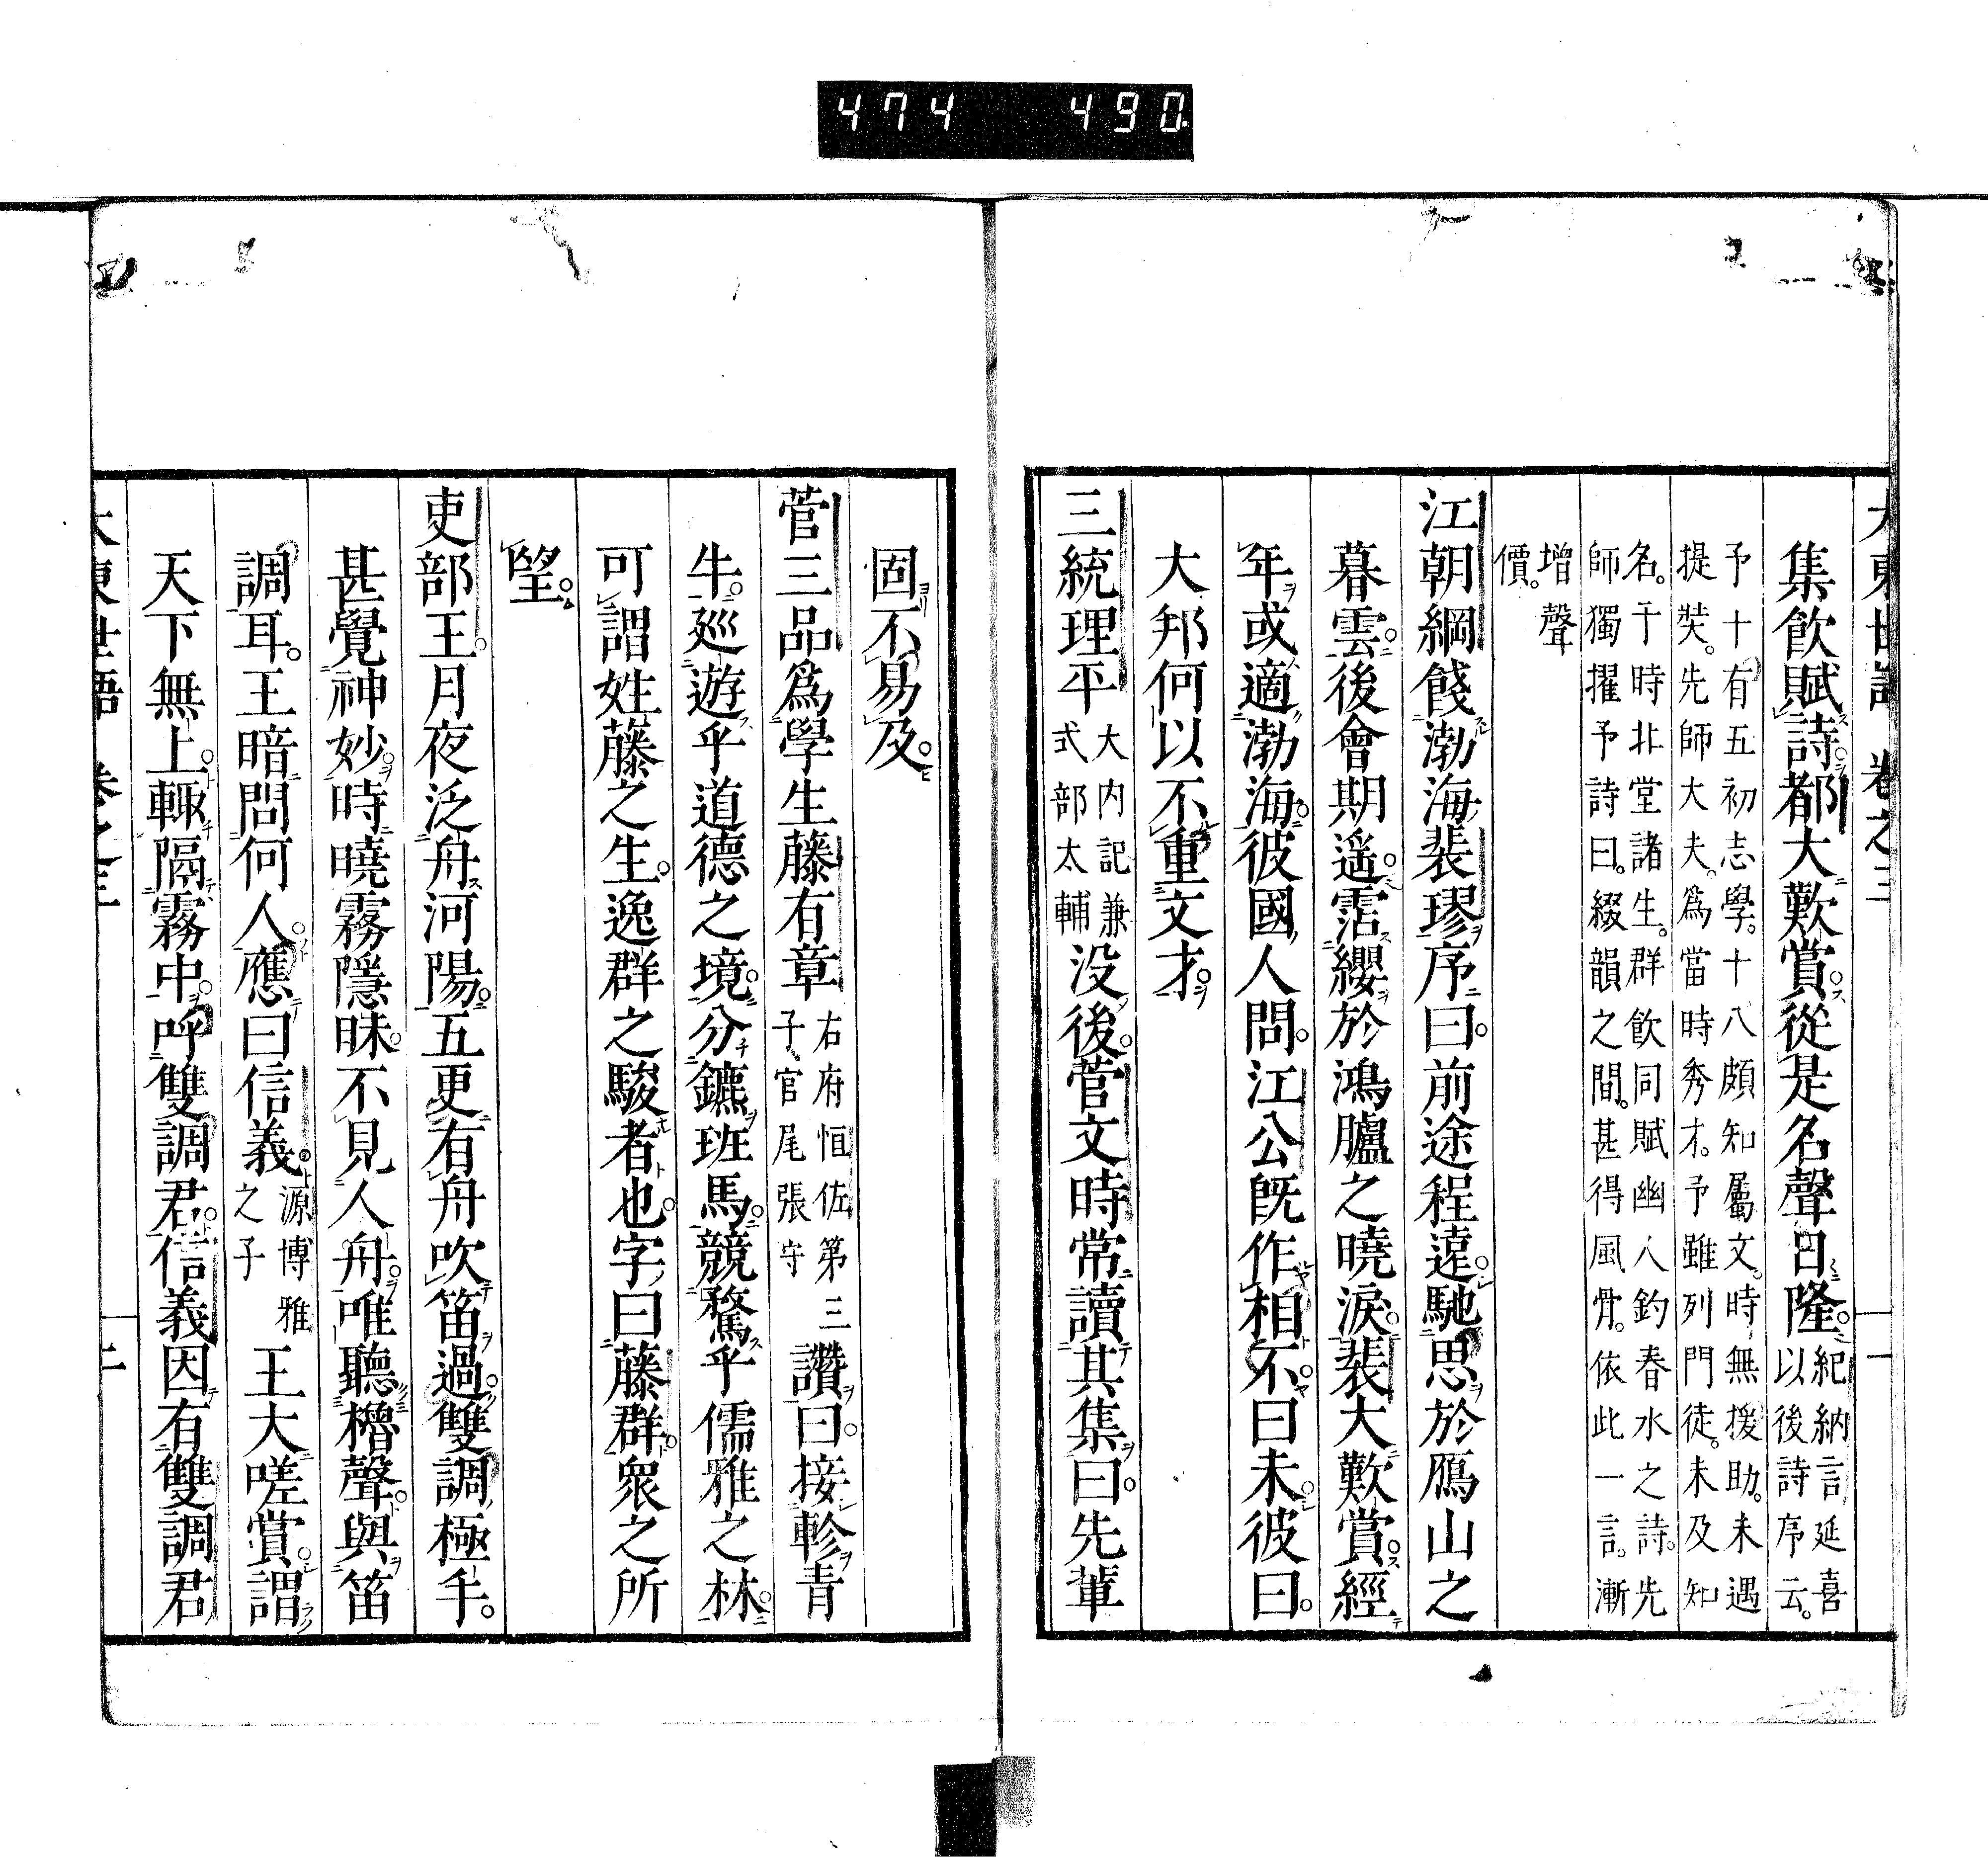 474 490
大東世語 卷之三
集飲賦詩都大歎賞從是名聲日隆紀納言延喜以後詩序云
予十有五初志學十八頗知屬文時無援助未遇提奘先師大夫爲當時秀才予雖列門徒未及知
名于時北堂諸生群飲同賦幽人釣春水之詩先師獨擢予詩曰綴韻之間甚得風骨依此一言漸
增聲價
江朝綱餞渤海裴璆序曰前途程遠馳思於鴈山之
暮雲後會期遥霑纓於鴻臚之曉淚裴大歎賞經
年或適渤海彼國人問江公既作相不曰未彼曰
大邦何以不重文才
三統理平大内記兼式部太輔没後菅文時常讀其集曰先輩
固不易及
菅三品爲學生藤有章右府恒佐第三子官尾張守讚曰接軫青
牛巡遊乎道德之境分鑣班馬競騖乎儒雅之林
可謂姓藤之生逸群之駿者也字曰藤群衆之所
望
吏部王月夜泛舟河陽五更有舟吹笛過雙調極手
甚覺神妙時曉霧隱昧不見人舟唯聽櫓聲與笛
調耳王暗問何人應曰信義源博雅之子王大嗟賞謂
天下無上輙隔霧中呼雙調君信義因有雙調君
大東世語 卷之三 二